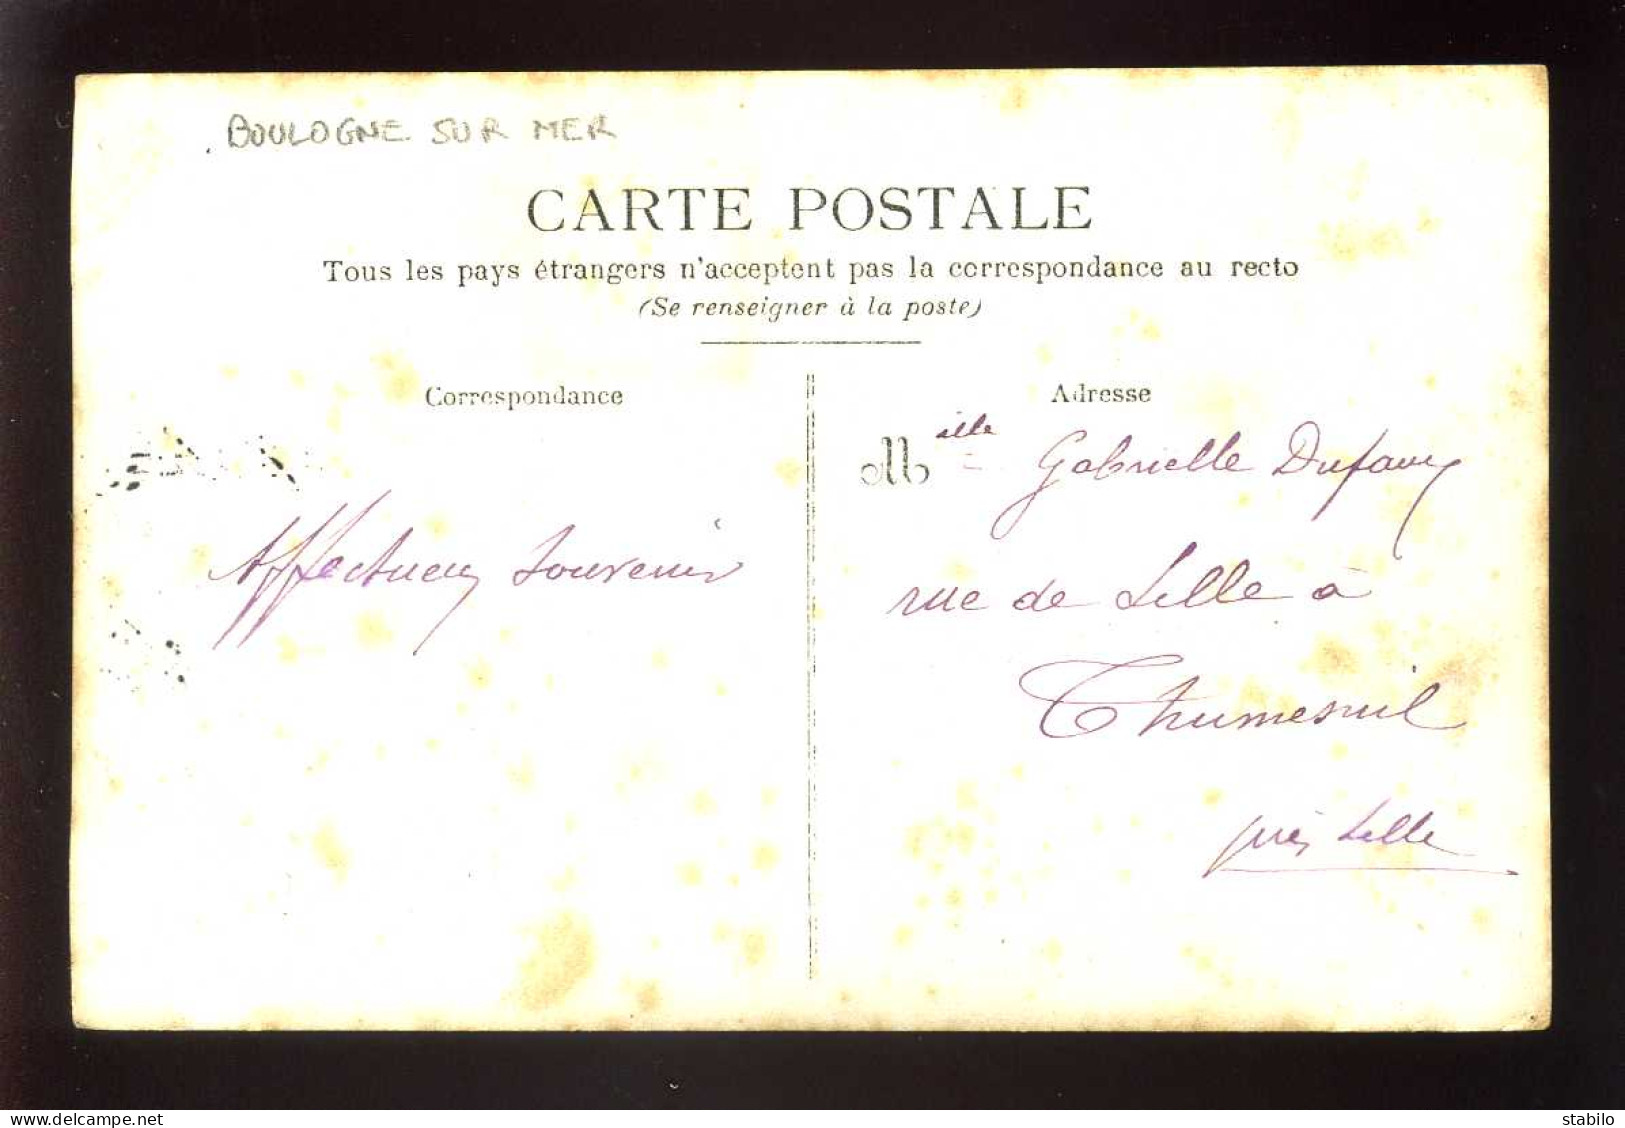 BOULOGNE SUR MER
CARTE POSTALE
Tous les pays étrangers n'acceptent pas la correspondance au recto
(Se renseigner à la poste)
Correspondance
Adresse
Affectueux souvenir
Mlle Gabrielle
rue de Lille à
Thumesnil
près Lille
www.delcampe.net
stabilo